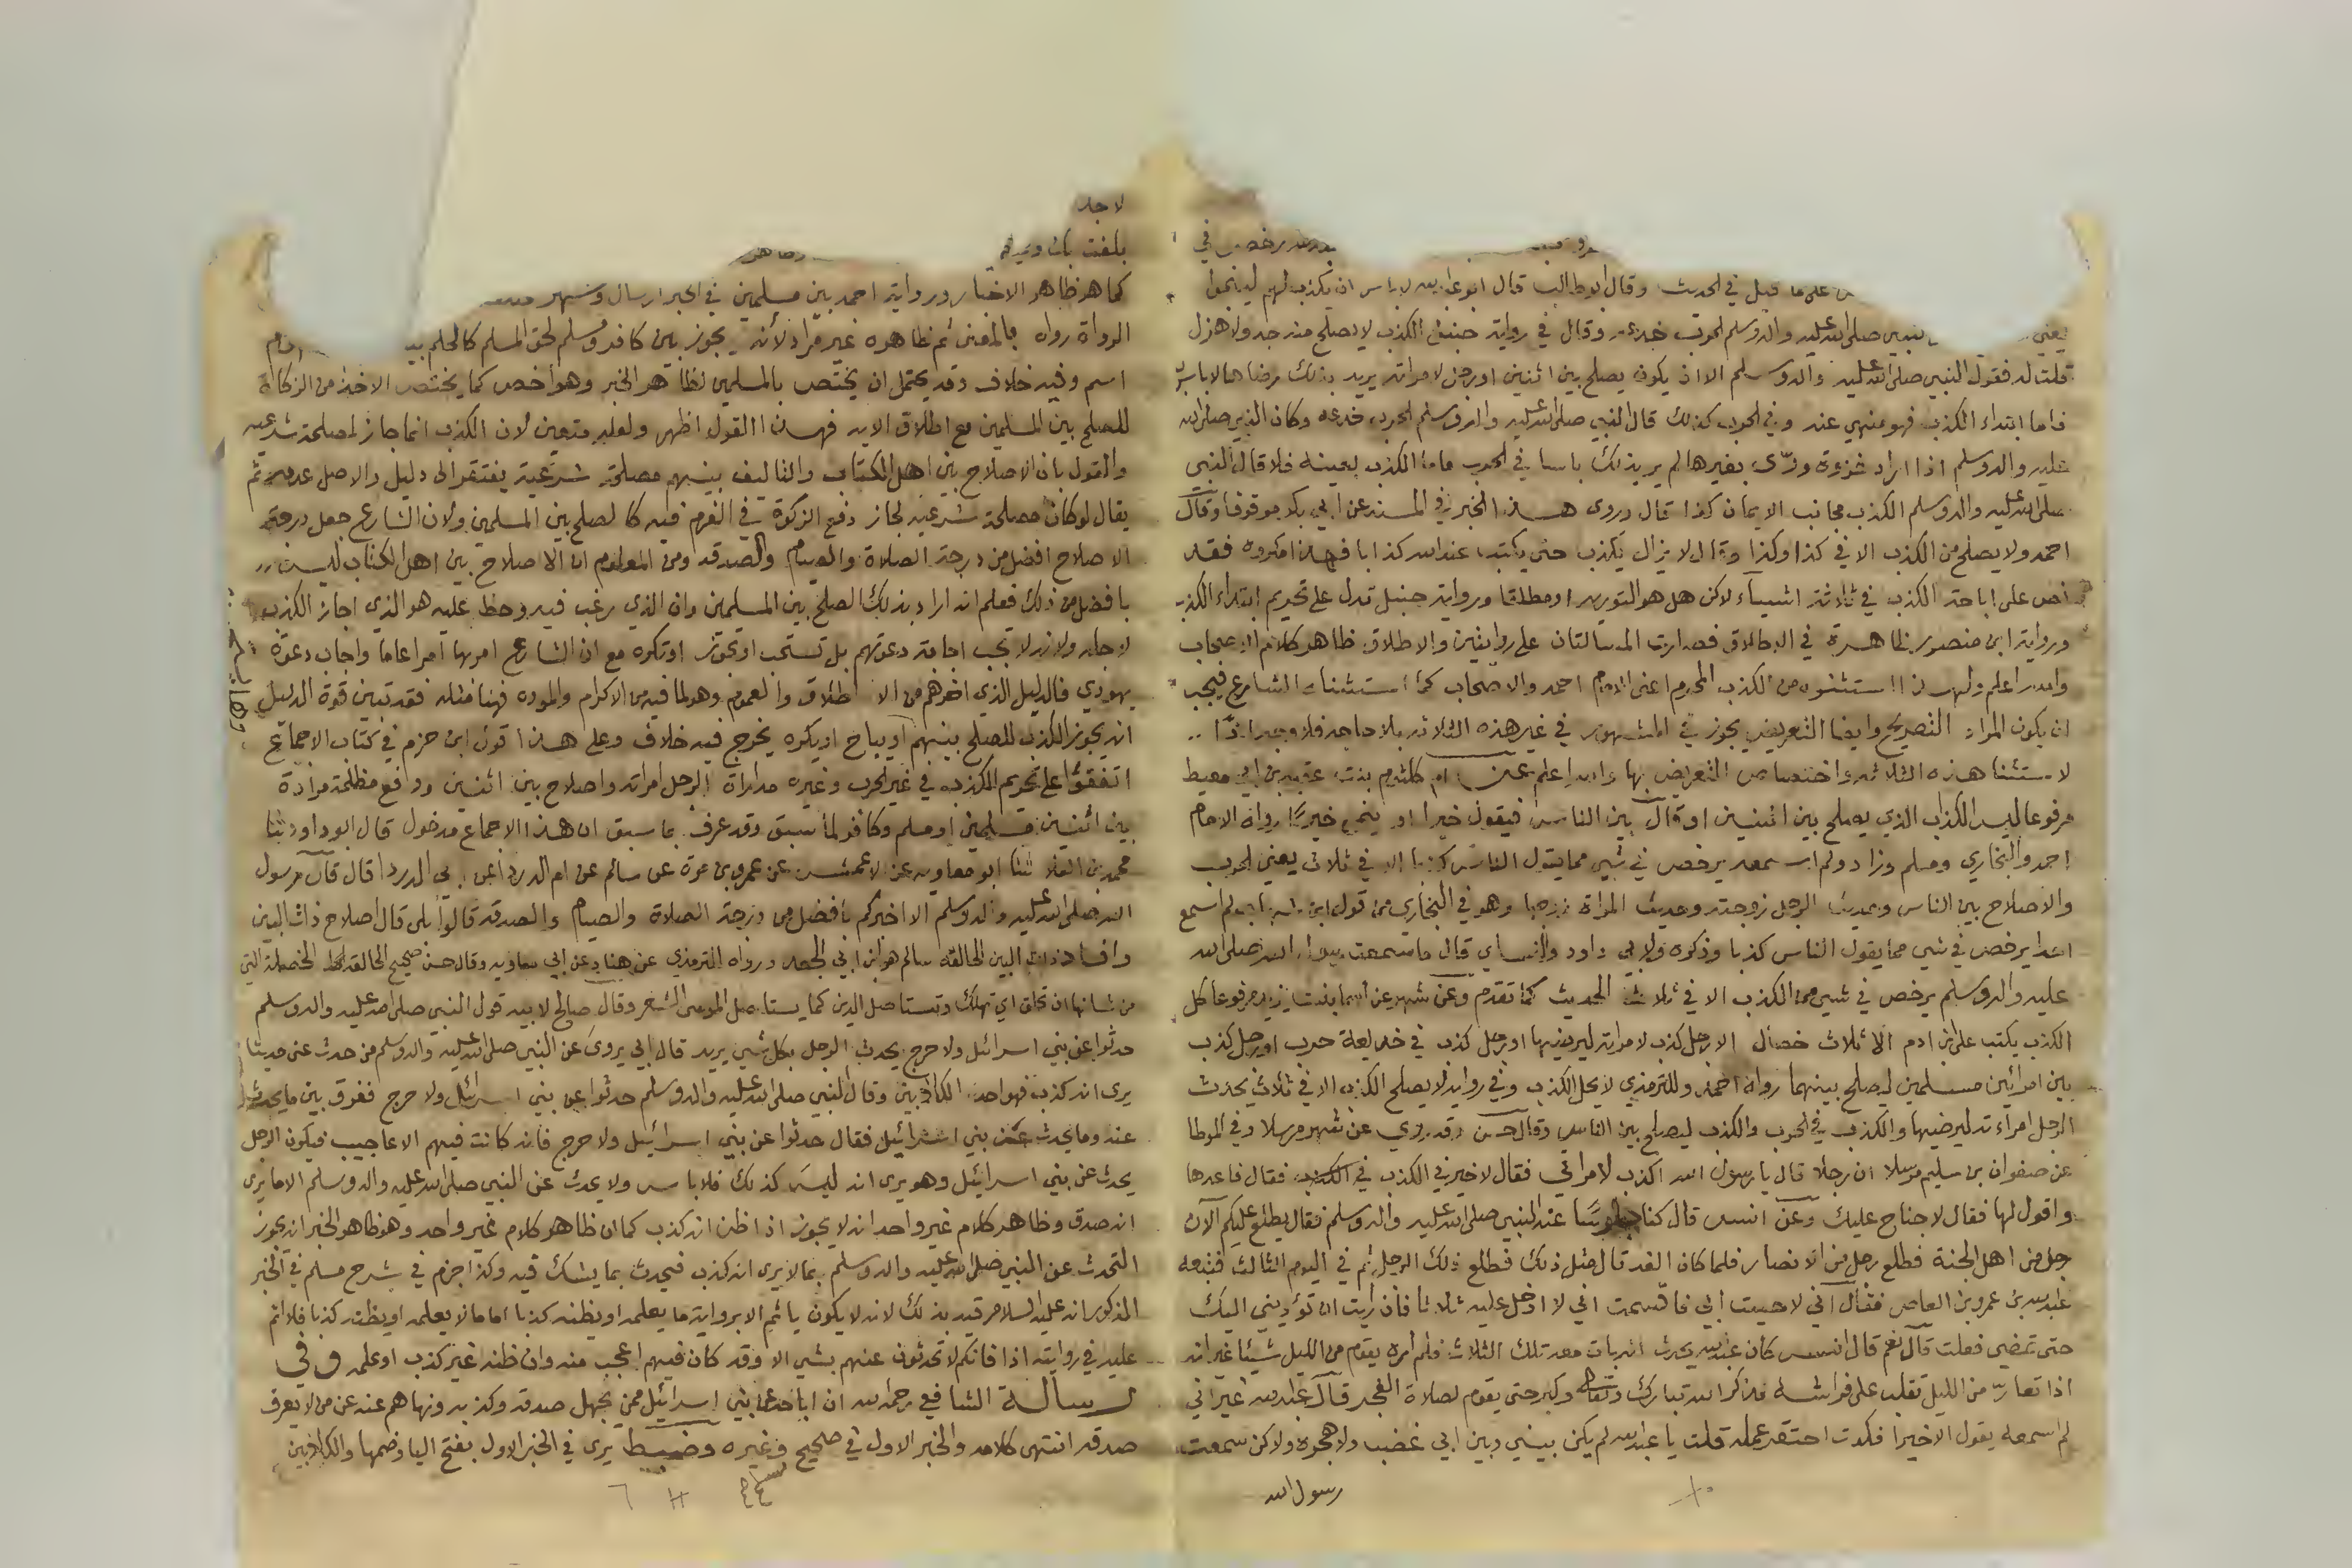 رخص في
على ما قيل في الحديث وقال ابو طالب قال ابو عبدالله لا باس ان يكذب لهم لينجوا
يعني النبي صلى الله عليه واله وسلم الحرب خدعة وقال في رواية حنبل الكذب لا يصلح منه جد ولا هزل
قلت له فقول النبي صلى الله عليه واله وسلم الا ان يكون يصلح بين اثنين او رجل لامراته يريد بذلك رضاها قال لا باس به
فاما ابتداء الكذب فهو منهي عنه وفي الحرب كذلك قال النبي صلى الله عليه واله وسلم الحرب خدعه وكان النبي صلى الله
عليه واله وسلم اذا اراد غزوة ورّى بغيرها لم ير بذلك باسا في الحرب فاما الكذب بعينه فلا قال النبي
صلى الله عليه واله وسلم الكذب مجانب الايمان كذا قال وروى هذا الخبر في المسند عن ابي بكر موقوفا وقال
احمد ولا يصلح من الكذب الا في كذا وكذا وقال لا يزال يكذب حتى يكتب عند الله كذابا فهذا مكروه فقد
نص على اباحة الكذب في ثلاثة اشياء لاكن هل هو التورية او مطلقا ورواية حنبل تدل على تحريم ابتداء الكذب
ورواية ابن منصور ظاهرة في الاطلاق فصارت المسالتان على روايتين والاطلاق ظاهر كلام الاصحاب
والله اعلم ولهذا استثنوه من الكذب المحرم اعني الامام احمد والاصحاب كما استثناه الشارع فيجب
ان يكون المراد التصريح وايضا التعريض يجوز في المشهور في غير هذه الثلاثه بلا حاجه فلا وجه اذًا
لاستثنا هذه الثلاثه واختصاص التعريض بها والله اعلم عن ام كلثوم بنت عقبه بن ابي معيط
مرفوعا ليس الكذاب الذي يصلح بين اثنين او قال بين الناس فيقول خيرا او ينمي خيرًا رواه الامام
احمد والبخاري ومسلم وزاد ولم اسمعه يرخص في شي مما يقول الناس كذبا الا في ثلاث يعني الحرب
والاصلاح بين الناس وحديث الرجل زوجته وحديث المراة زوجها وهو في البخاري من قول ابن شهاب لم اسمع
احدا يرخص في شي مما يقول الناس كذبا وذكره ولابي داود والنساي قال ما سمعت رسول الله صلى الله
عليه واله وسلم يرخص في شي من الكذب الا في ثلاث الحديث كما تقدم وعن شهر عن اسما بنت يزيد مرفوعا كل
الكذب يكتب على ابن ادم الا ثلاث خصال الا رجل كذب لامراته ليرضيها او رجل كذب في خديعة حرب او رجل كذب
بين امرأين مسلمين ليصلح بينهما رواه احمد وللترمذي لا يحل الكذب وفي رواية لا يصلح الكذب الا في ثلاث يحدث
الرجل امراءته ليرضيها والكذب في الحرب والكذب ليصلح بين الناس وقال حسن وقد روي عن شهر مرسلا وفي الموطا
عن صفوان بن سليم مرسلا ان رجلا قال يا رسول الله اكذب لامراتي فقال لا خير في الكذب فقال فاعدها
واقول لها فقال لا جناح عليك وعن انس قال كنا جلوسًا عند النبي صلى الله عليه واله وسلم فقال يطلع عليكم الآن
رجل من اهل الجنة فطلع رجل من الانصار فلما كان الغد قال مثل ذلك فطلع ذلك الرجل ثم في اليوم الثالث فتبعه
عبدالله بن عمرو بن العاص فقال اني لاحيت ابي فاقسمت اني لا ادخل عليه ثلاثا فان رايت ان تؤديني اليك
حتى تمضي فعلت قال نعم قال انس كان عبدالله يحدث انه بات معه تلك الثلاث فلم يره يقوم من الليل شيئا غير انه
اذا تعارّ من الليل تقلب على فراشه فذكر الله تبارك وتعالى وكبر حتى يقوم لصلاة الفجر قال عبدالله غير اني
لم اسمعه يقول الا خيرا فكدت احتقر عمله قلت يا عبدالله لم يكن بيني وبين ابي غضب ولا هجرة ولاكن سمعت
رسول الله
لاجل
بلغت
كما هو ظاهر الاخبار ورواية احمد بين مسلمين في الخبر ارسال وشهر
الرواة رواه بالمعنى ثم ظاهره غير مراد لأنه يجوز بين كافر ومسلم لحق المسلم كالحكم
اسم وفيه خلاف وقد يحتمل ان يختص بالمسلمين لظاهر الخبر وهو اخص كما يختص الاخذ من الزكاة
للصلح بين المسلمين مع اطلاق الايه فهذا القول اظهر ولعله متعين لان الكذب انما جاز لمصلحة شرعيه
والقول بان الاصلاح بين اهل الكتاب والتاليف بينهم مصلحة شرعية يفتقر الى دليل والاصل عدمه ثم
يقال لو كان مصلحة شرعيه لجاز دفع الزكوة في الغرم فيه كالصلح بين المسلمين ولان الشارع جعل درجة
الاصلاح افضل من درجة الصلاة والصيام والصدقه ومن المعلوم ان الاصلاح بين اهل الكتاب ليس
بافضل من ذلك فعلم انه اراد بذلك الصلح بين المسلمين وان الذي رغب فيه وحظ عليه هو الذي اجاز الكذب
لاجله ولانه لا تجب اجابة دعوتهم بل تستحب او تجوز او تكره مع ان الشارع امر بها امرا عاما واجاب دعوة
يهودي فالدليل الذي اخرجهم من الاطلاق والعموم وهو لما فيه من الاكرام والموده فهنا مثله فقد تبين قوة الدليل
انه يجوز الكذب للصلح بينهم او يباح او يكره يخرج فيه خلاف وعلى هذا قول ابن حزم في كتاب الاجماع
اتفقوا على تحريم الكذب في غير الحرب وغيره مداراة الرجل امراته واصلاح بين اثنين ودفع مظلمة مرادة
بين اثنين مسلمين او مسلم وكافر لما سبق وقد عرف بما سبق ان هذا الاجماع مدخول قال ابو داود ثنا
محمد بن العلا ثنا ابو معاويه عن الاعمش عن عمرو بن مرة عن سالم عن ام الدردا عن ابي الدردا قال قال رسول
الله صلى الله عليه واله وسلم الا اخبركم بأفضل من درجة الصلاة والصيام والصدقه قالوا بلى قال اصلاح ذات البين
وافساد ذات البين الحالقه سالم هو ابن ابي الجعد ورواه الترمذي عن هناد عن ابي معاويه وقال حسن صحيح الحالقة الخصلة التي
من شانها ان تحلق اي تهلك وتستاصل الدين كما يستاصل الموسى الشعر وقال صالح لابيه قول النبي صلى الله عليه واله وسلم
حدثوا عن بني اسرائل ولا حرج يحدث الرجل بكل شي يريد قال ابي يروى عن النبي صلى الله عليه واله وسلم من حدث عني حديثا
يرى انه كذب فهو احد الكاذبين وقال النبي صلى الله عليه واله وسلم حدثوا عن بني اسرائل ولا حرج ففرق بين ما يحدث
عنه وما يحدث عن بني اسرائيل فقال حدثوا عن بني اسرائيل ولا حرج فانه كانت فيهم الاعاجيب فيكون الرجل
يحدث عن بني اسرائيل وهو يرى انه ليس كذلك فلا باس ولا يحدث عن النبي صلى الله عليه واله وسلم الا ما يرى
انه صدق وظاهر كلام غير واحد انه لا يجوز اذا ظن انه كذب كما ان ظاهر كلام غير واحد وهو ظاهر الخبر انه يجوز
التحدث عن النبي صلى الله عليه واله وسلم بما لا يرى انه كذب فيحدث بما يشك فيه وكذا جزم في شرح مسلم في الخبر
المذكور انه عليه السلام قيد بذلك لانه لا يكون ياثم الا برواية ما يعلمه او يظنه كذبا اما ما لا يعلمه او يظنه كذبا فلا اثم
عليه في روايته اذا فانكم لا تحدثون عنهم بشي الا وقد كان فيهم اعجب منه وان ظنه غير كذب او علمه وفي
رسالة الشافعي رحمه الله ان اباحة عن بني اسرائيل ممن يجهل صدقه وكذبه ونهاهم عنه عن من لا يعرف
صدقه انتهى كلامه والخبر الاول في صحيح وغيره وضبط يرى في الخبر الاول بفتح اليا وضمها والكاذبين